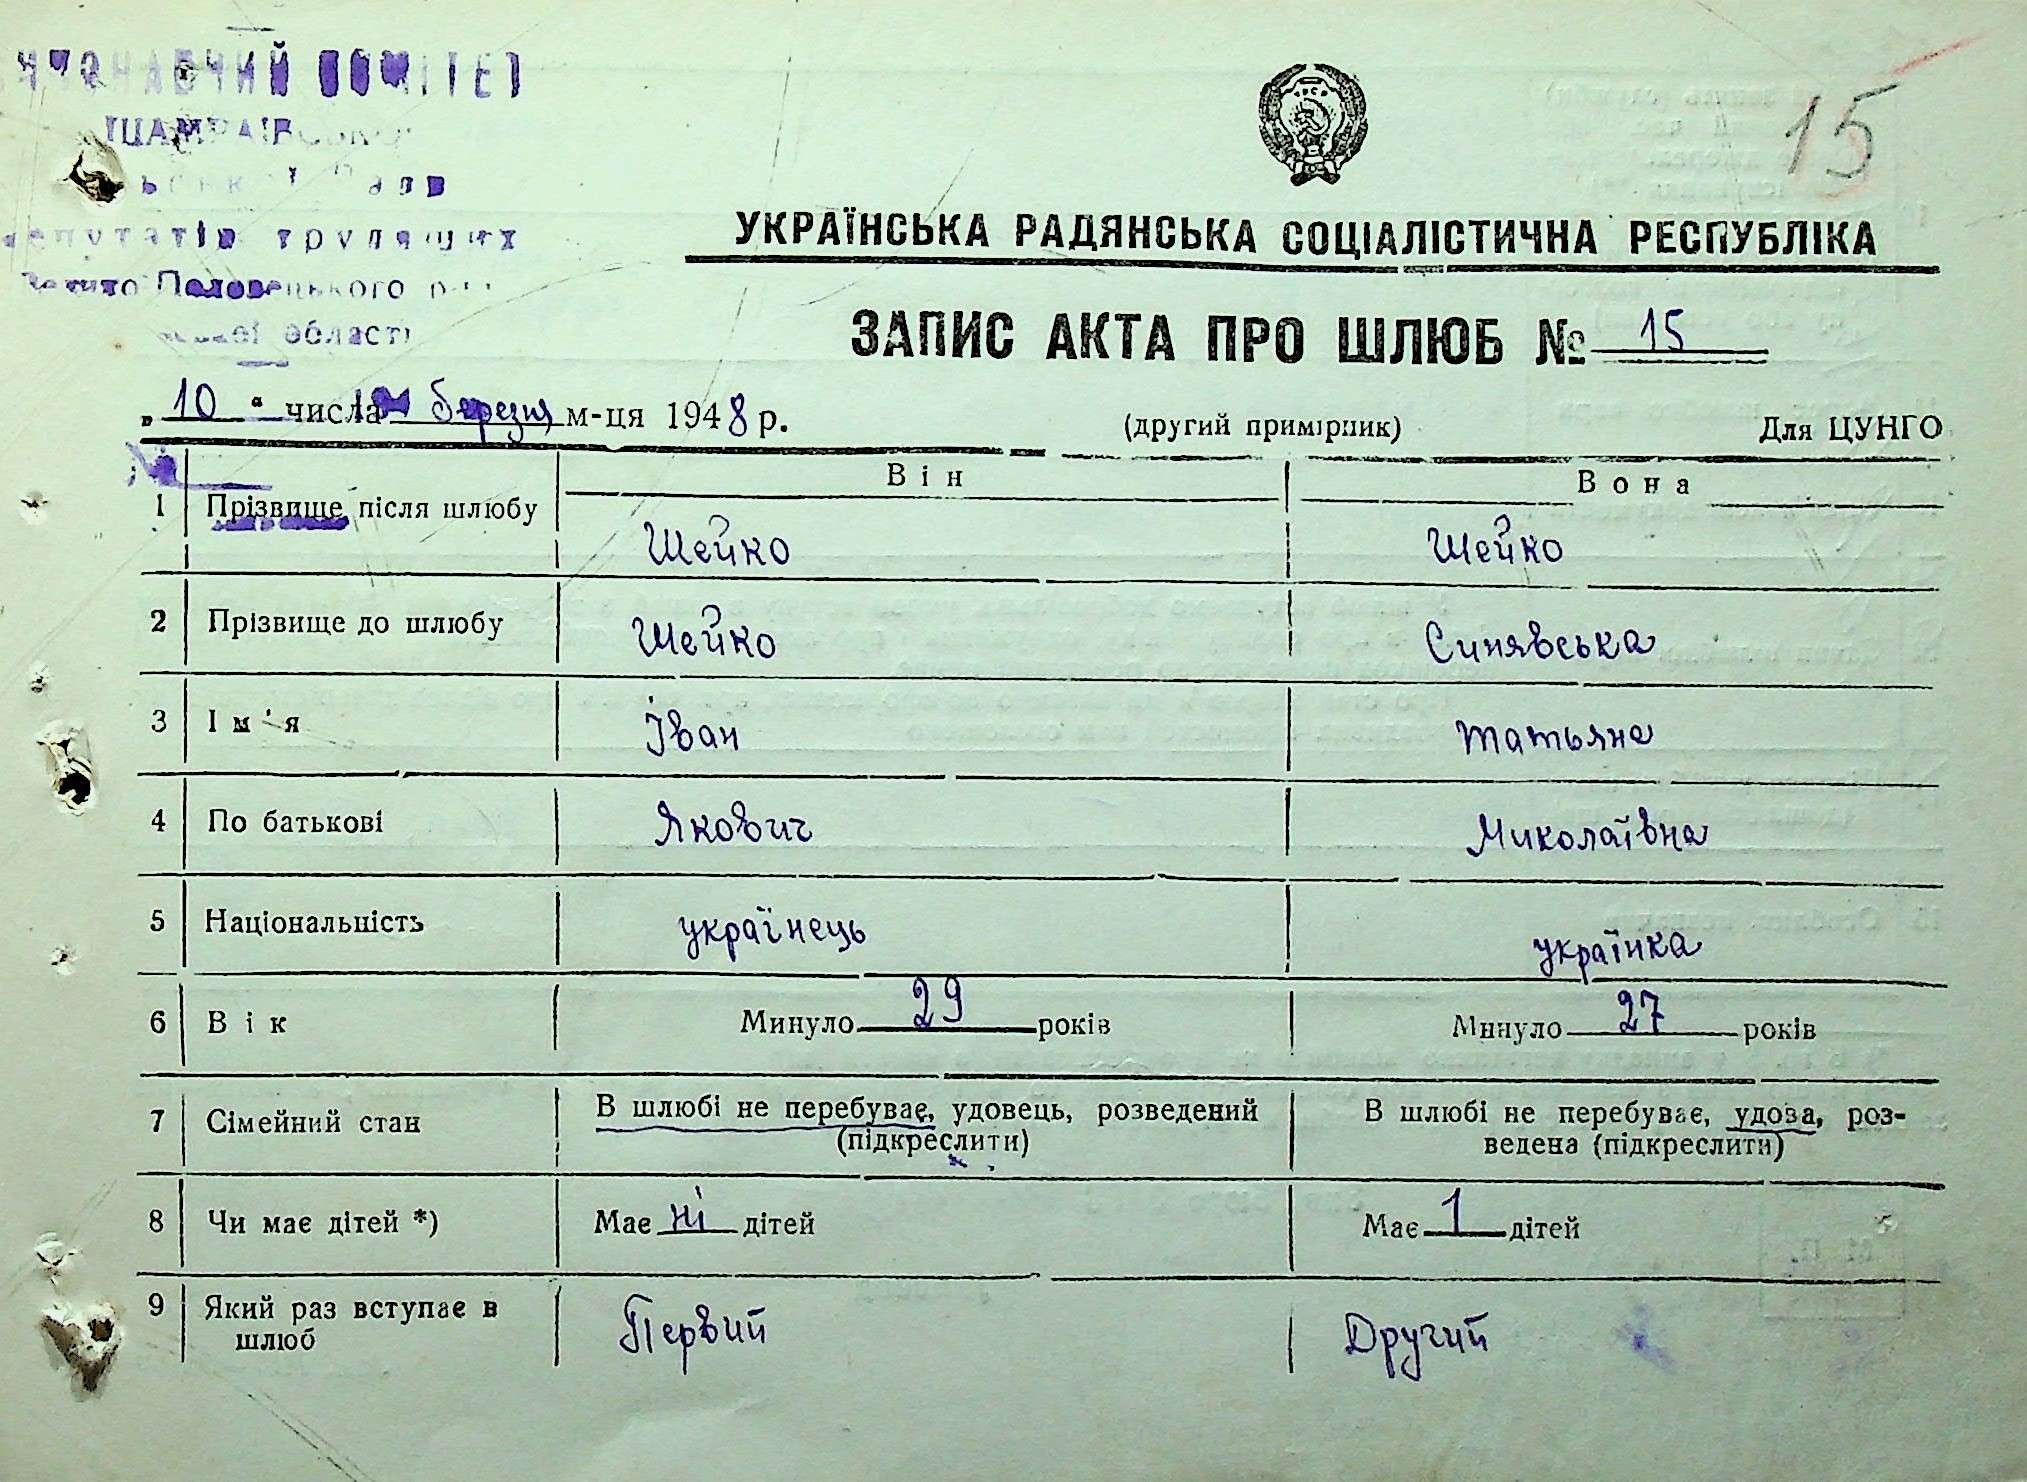 15
УКРАЇНСЬКА РАДЯНСЬКА СОЦІАЛІСТИЧНА РЕСПУБЛІКА
депутатів трудящих
Половецького
області
ЗАПИС АКТА ПРО ШЛЮБ № 15
„10“ числа березня м-ця 1948 р. (другий примірник) Для ЦУНГО
Він Вона
1 Прізвище після шлюбу Шейко Шейко
2 Прізвище до шлюбу Шейко Синявська
3 Ім'я Іван Татьяна
4 По батькові Якович Миколаївна
5 Національність українець українка
6 Вік Минуло 29 років Минуло 27 років
7 Сімейний стан В шлюбі не перебуває, удовець, розведений (підкреслити) В шлюбі не перебуває, удова, роз-
ведена (підкреслити)
8 Чи має дітей *) Має ні дітей Має 1 дітей
9 Який раз вступає в шлюб Первий Другий